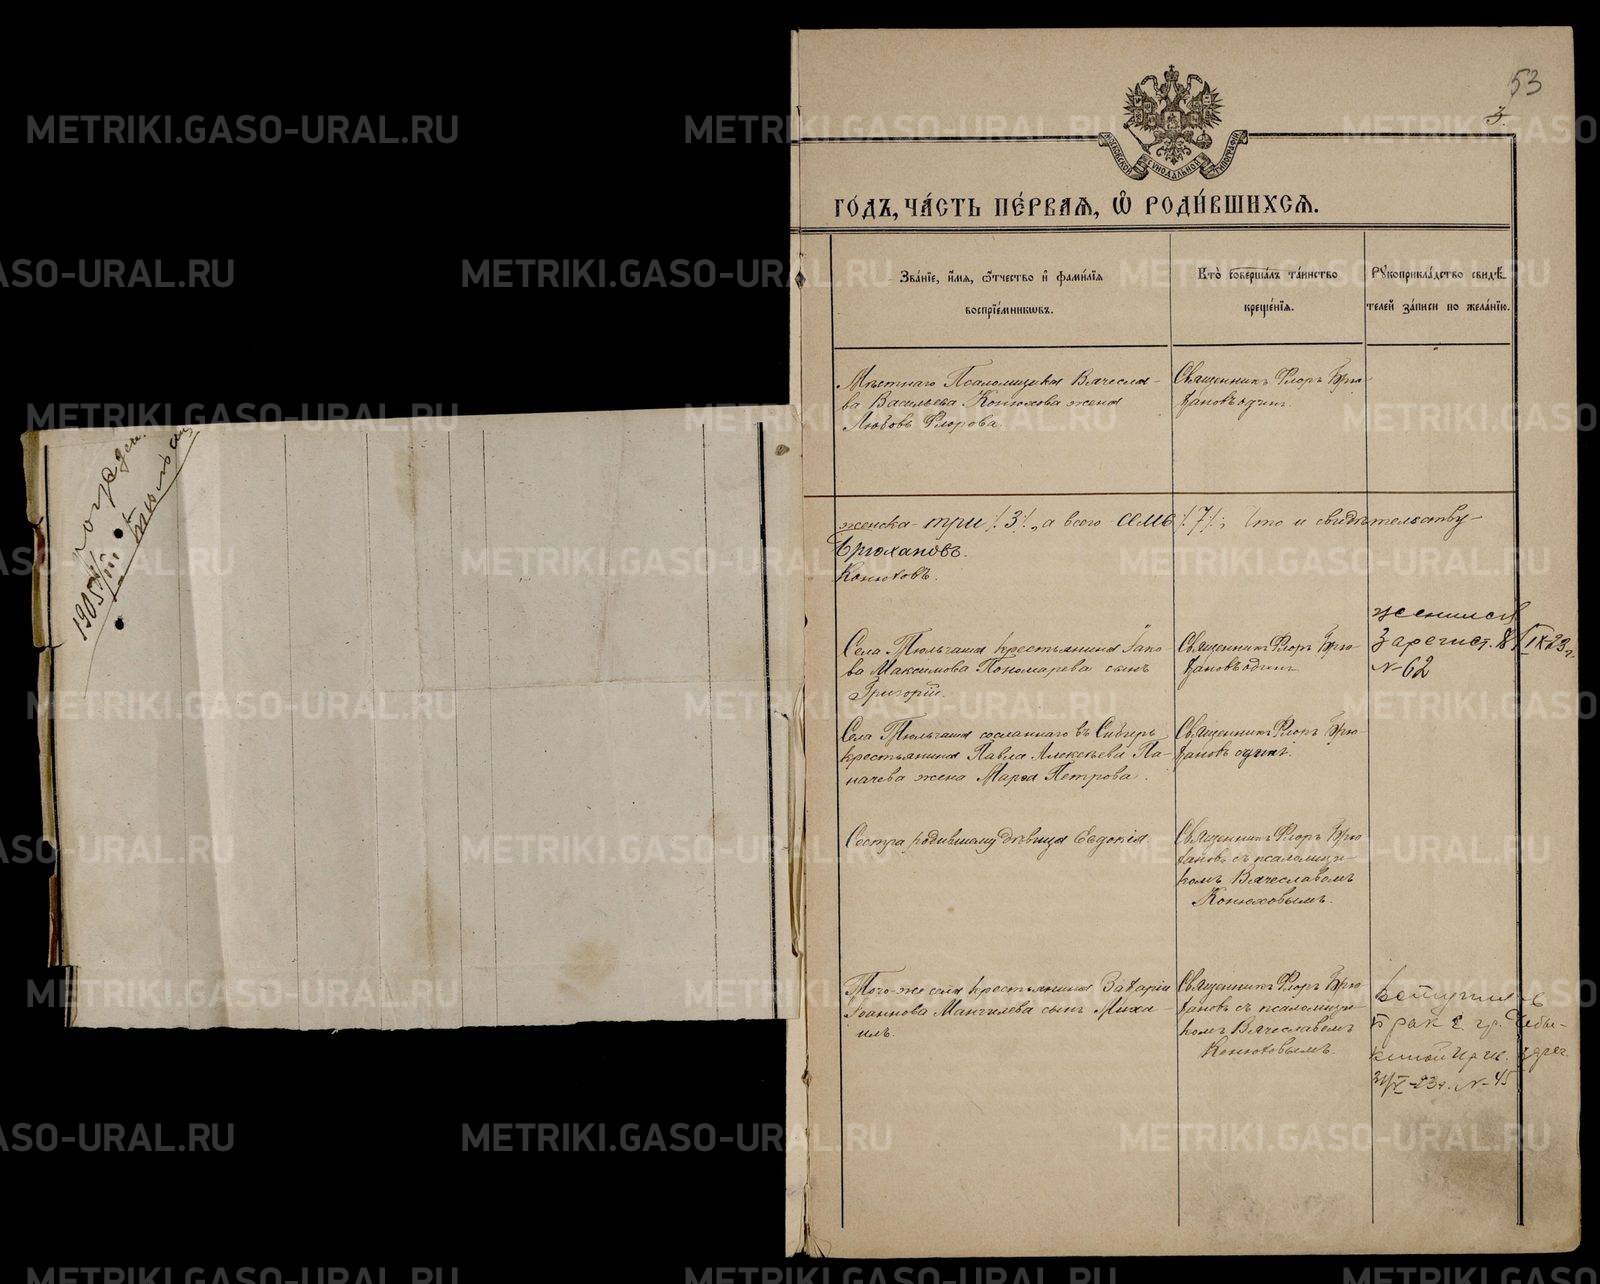 53
3.
МОСКОВСКОЙ СУНОДАЛЬНОЙ ТИПОГРАФІИ
ГОДЪ, ЧА́СТЬ ПЕ́РВАѦ, Ѽ РОДИ́ВШИХСѦ.
Зва́нїе, и́мѧ, ѻ҆́тчество и҆ фами́лїѧ
воспрїе́мникѡвъ.
Кто̀ соверша́лъ та́инство
креще́нїѧ.
Рꙋкоприкла́дство свидѣ́-
телей за́писи по жела́нїю.
Мѣстнаго Псаломщика Вячесла-
ва Васильева Конюхова жена
Любовь Флорова.
Священникъ Флоръ Брю-
хановъ одинъ.
женска - три /3/, а всего семь /7/, Что и свидѣтельству-
Брюхановъ.
Конюховъ.
Села Тюльгаша крестьянина Іако-
ва Максимова Пономарева сынъ
Григорій.
Священникъ Флоръ Брю-
хановъ одинъ
женился
Зарегист. 8/IX-23г.
№ 62
Села Тюльгаша сосланнаго въ Сибирь
крестьянина Павла Алексѣева Па-
начева жена Марѳа Петрова.
Священникъ Флоръ Брю-
хановъ одинъ.
Сестра родившему дѣвица Евдокія
Священникъ Флоръ Брю-
хановъ съ псаломщи-
комъ Вячеславомъ
Конюховымъ.
Того-же села крестьянина Захаріи
Іоаннова Мангилева сынъ Миха-
илъ.
Священникъ Флоръ Брю-
хановъ съ псаломщи-
комъ Вячеславомъ
Конюховымъ.
Вступилъ в
брак с гр.
№ 45
1905
METRIKI.GASO-URAL.RU